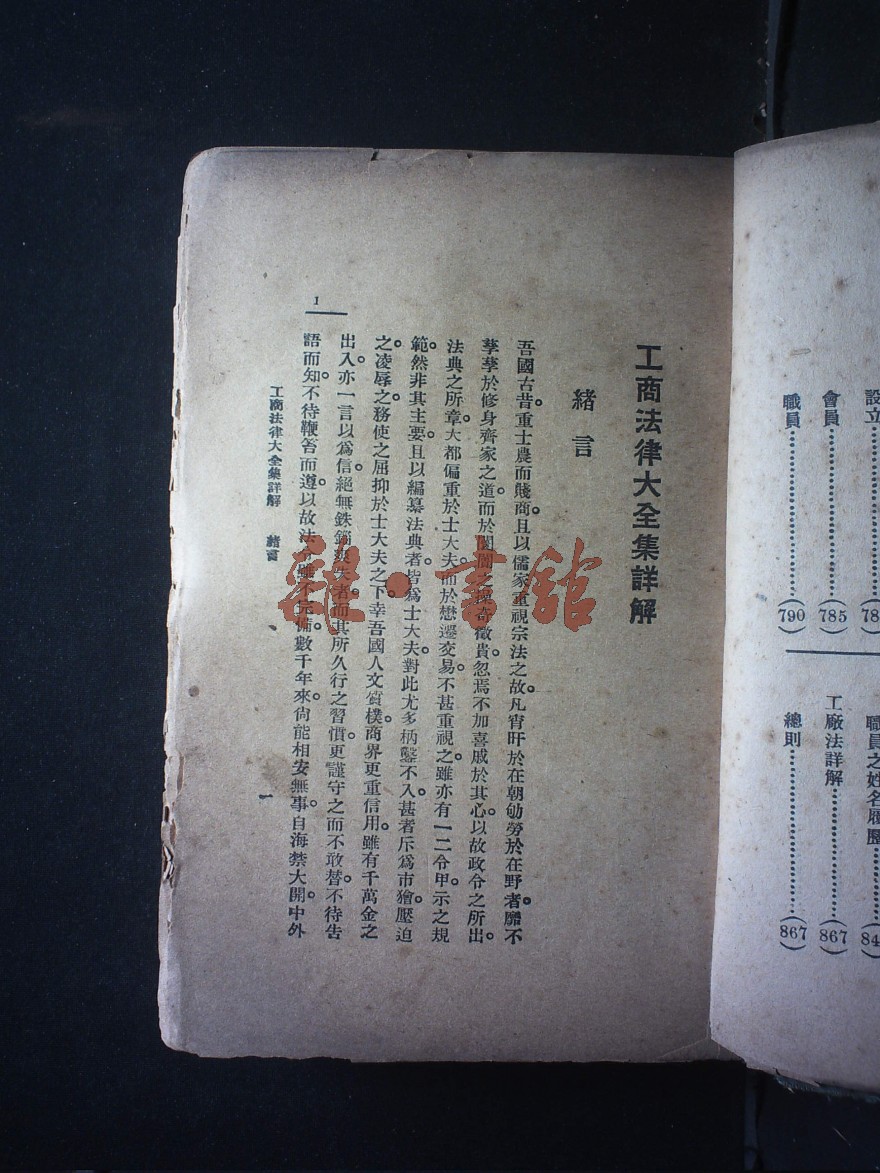 設立
會員
(785)
職員
(790)
職員之姓名履歷
工廠法詳解
(867)
總則
(867)
工商法律大全集詳解
緒言
吾國古昔。重士農而賤商。且以儒家重視宗法之故。凡宵旰於在朝。劬勞於在野者。靡不
孳孳於修身齊家之道。而於闤闠之操奇徵貴。忽焉不加喜戚於其心。以故政令之所出。
法典之所章。大都偏重於士大夫。而於懋遷交易。不甚重視之。雖亦有一二令甲。示之規
範。然非其主要。且以編纂法典者。皆爲士大夫。對此尤多枘鑿不入。甚者斥爲市獪。壓迫
之。凌辱之。務使之屈抑於士大夫之下。幸吾國人文質樸。商界更重信用。雖有千萬金之
出入。亦一言以爲信。絕無銖鐲爽失者。而其所久行之習慣。更謹守之而不敢替。不待告
語而知。不待鞭笞而遵。以故法令雖不完備。數千年來。尙能相安無事。自海禁大開。中外
工商法律大全集詳解 緒言
一
1
雜·書館